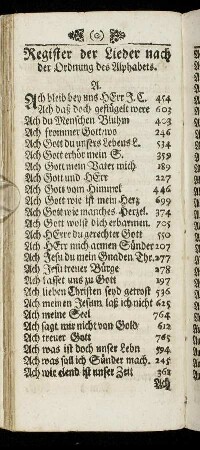 (o)
Register der Lieder nach
der Ordnung des Alphabets.
A.
Ach bleib bey uns HErr J.C. 454
Ach daß doch geflügelt were 603
Ach du Menschen Bluhm 403
Ach frommer Gott wo 246
Ach Gott du unsers Lebens L. 534
Ach Gott erhör mein S. 359
Ach Gott mein Vater mich 189
Ach Gott und HErr 227
Ach Gott vom Himmel 446
Ach Gott wie ist mein Herz 699
Ach Gott wie manches Herzel. 374
Ach Gott wollst dich erbarmen. 705
Ach HErre du gerechter Gott 550
Ach HErr mich armen Sünder 207
Ach Jesu du mein Gnaden Thr. 277
Ach Jesu treuer Bürge 278
Ach lasset uns zu Gott 297
Ach lieben Christen seyd getrost 536
Ach meinen Jesum laß ich nicht 625
Ach meine Seel 764
Ach sagt mir nicht von Gold 612
Ach treuer Gott 765
Ach was ist doch unser Lebn 594
Ach was soll ich Sünder mach. 245
Ach wie elend ist unser Zeit 368
Ach